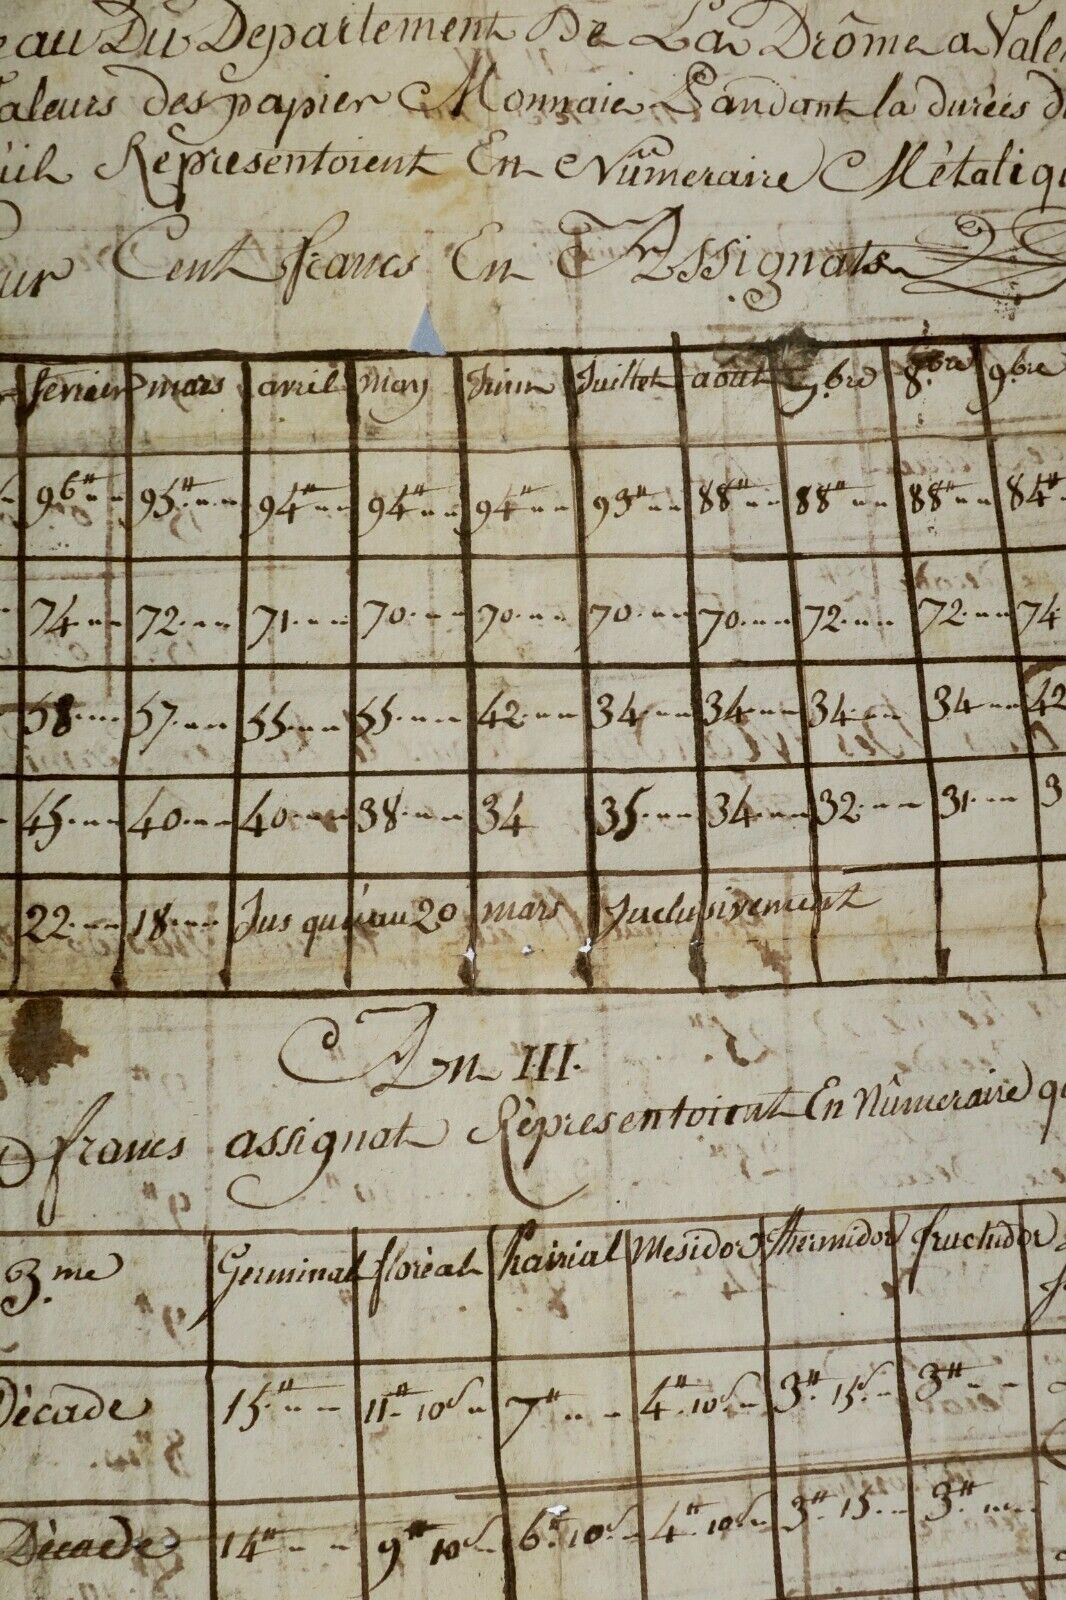 eau Du Departement De La Drôme a Vale
aleurs des papier Monnaie Pandant la durées d
Rèpresentoient En Nûmeraire Mètaliq
ur Cent francs En Assignats
fevrier mars avril may Juin Juillet aout 7.bre 8.bre 9.bre
96# 95# 94# 94# 94# 93# 88# 88# 88# 84#
74 72 71 70 70 70 70 72 72 74
58 57 55 55 42 34 34 34 34 42
45 40 40 38 34 35 34 32 31 3
22 18 Jus qu'au 20 mars Juclusivement
An III.
francs assignat Rèpresentoient En Nûmeraire q
3.me Germinal florèal Prairial Mesidor thermidor fructidor
Dècade 15# 11# 10s 7# 4# 10s 3# 15s 3#
Dècade 14# 9# 10s 6# 10s 4# 10s 3# 15 3#